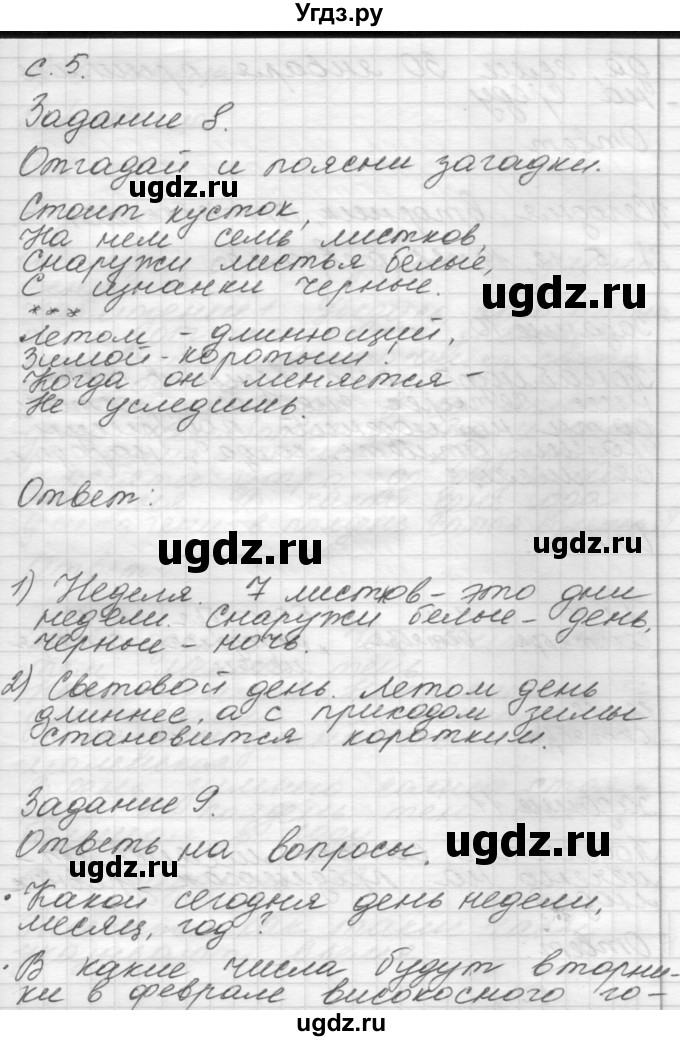 Угдз.ру
с. 5.
Задание 8.
Отгадай и поясни загадки.
ugdz.ru
Стоит кусток,
На нем семь листков,
Снаружи листья белые,
С изнанки черные.
ugdz.ru
***
Летом - длиннющий,
Зимой - коротыш!
Когда он меняется -
Не уследишь.
Ответ:
ugdz.ru
ugdz.ru
1) Неделя. 7 листков - это дни
недели. Снаружи белые - день,
черные - ночь.
2) Световой день. Летом день
длиннее, а с приходом зимы
становится коротким.
Задание 9.
Ответь на вопросы.
ugdz.ru
ugdz.ru
• Какой сегодня день недели,
месяц, год?
• В какие числа будут вторни-
ки в феврале високосного го-
ugdz.ru